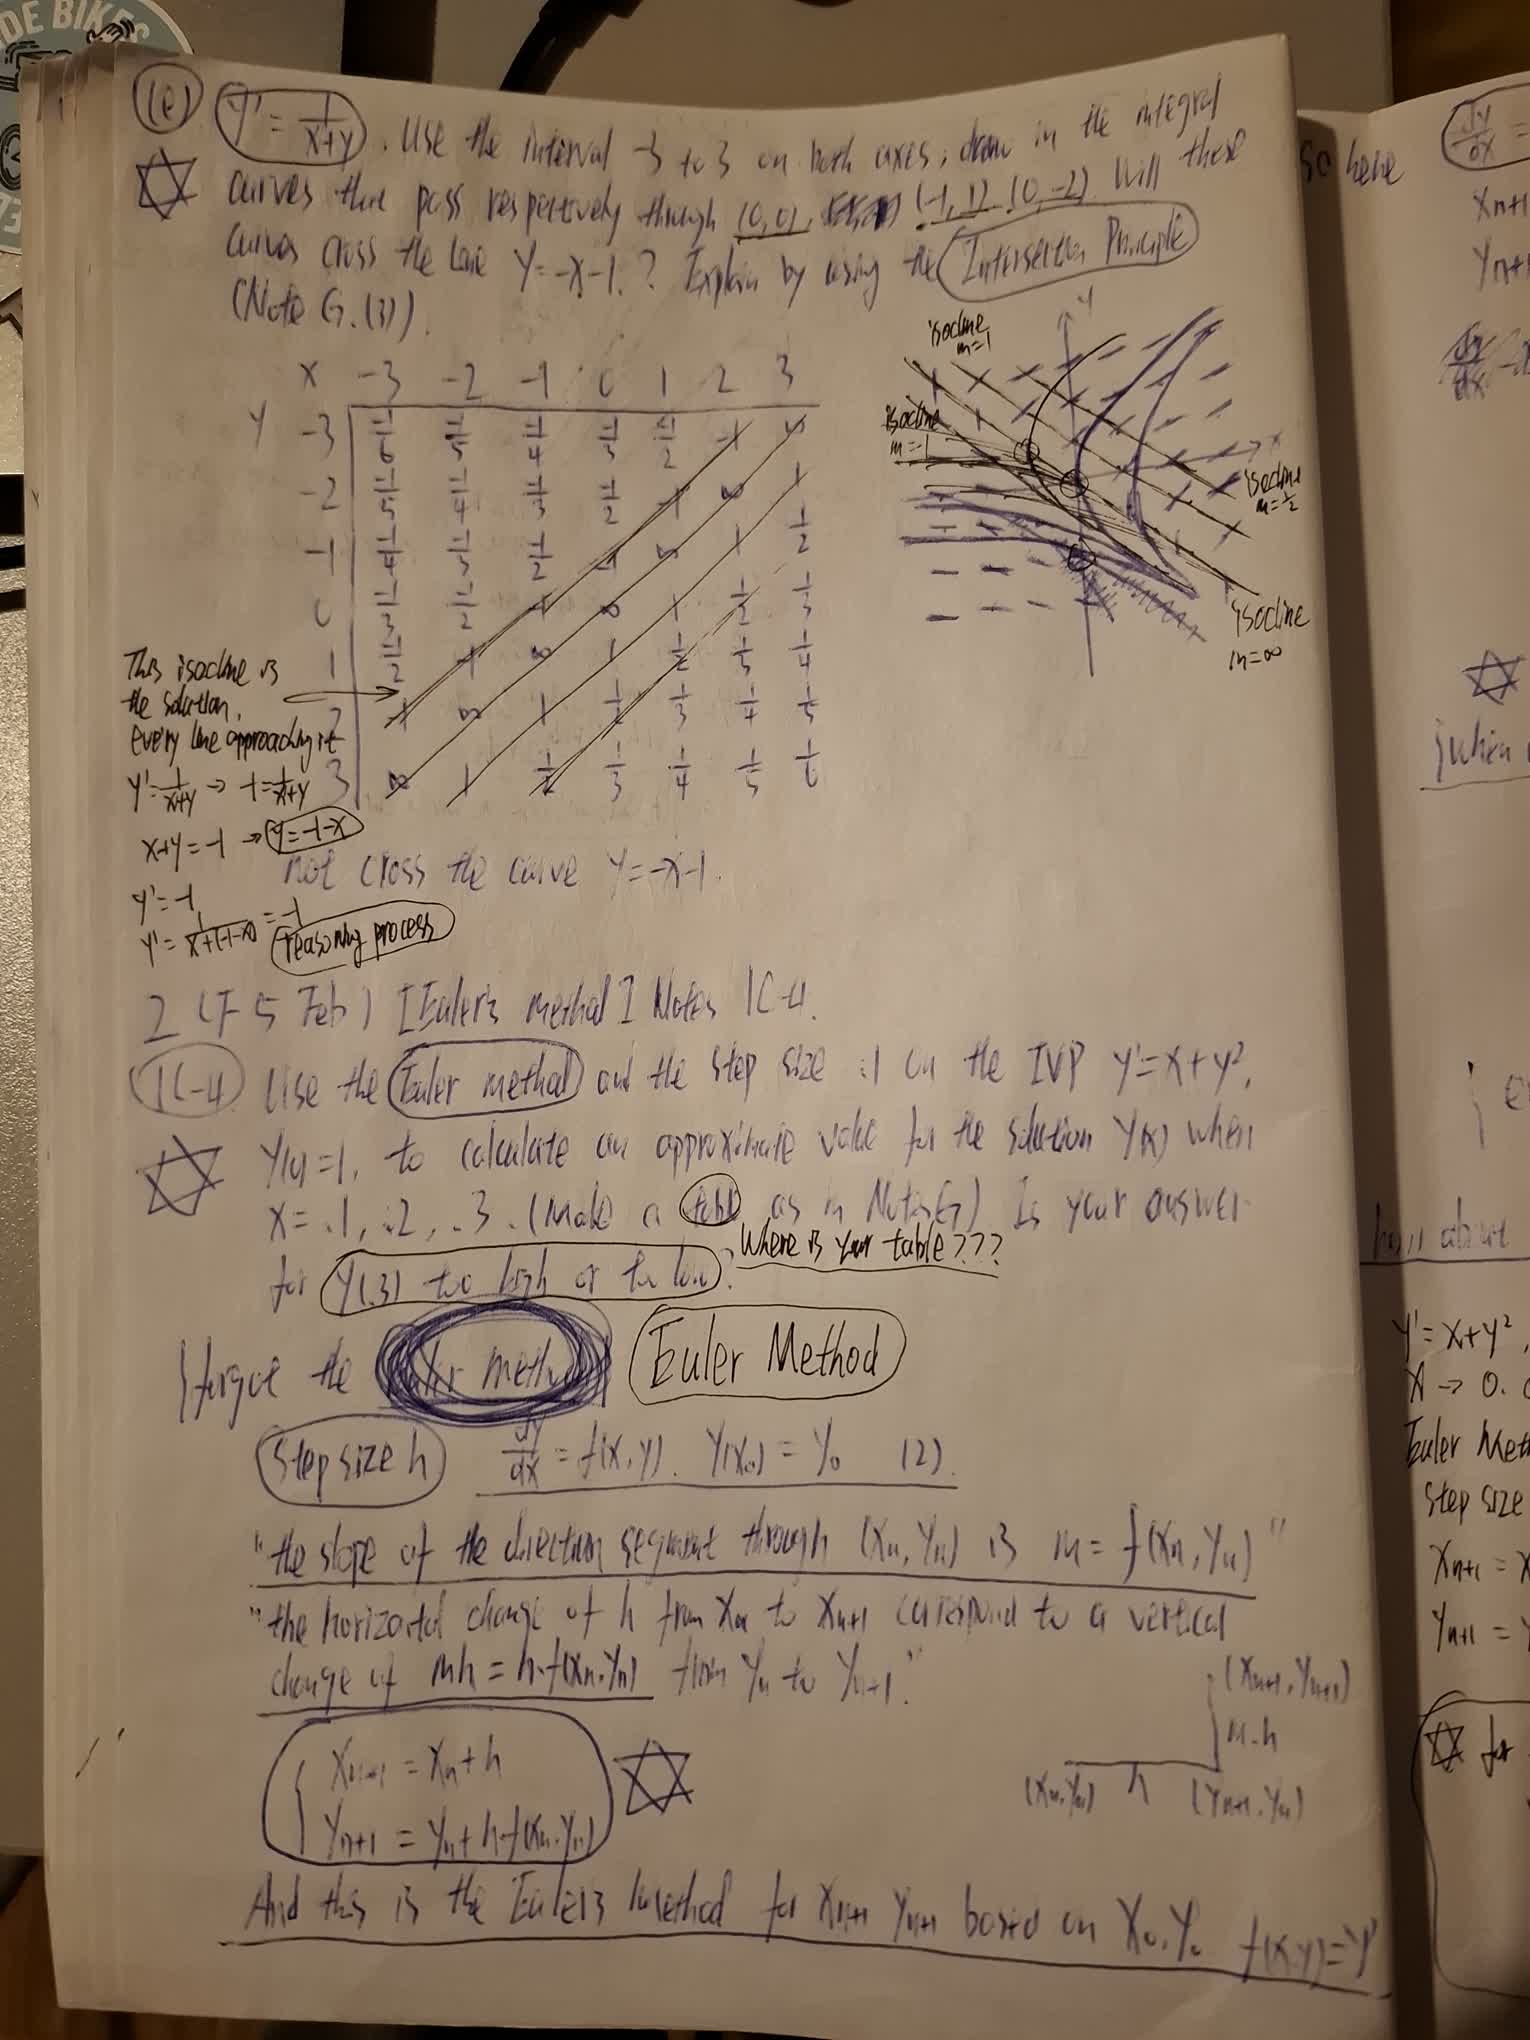 DE BIKES
(e) y' = 1/(x+y). Use the interval -3 to 3 on both axes; draw in the integral
curves that pass respectively through (0,0), (-1,1), (0,-2). Will these
curves cross the line y=-x-1.? Explain by using the Intersection Principle
(Note G. (3)).
x -3 -2 -1 0 1 2 3
y -3 -1/6 -1/5 -1/4 -1/3 -1/2 -1 ∞
-2 -1/5 -1/4 -1/3 -1/2 -1 ∞ 1
-1 -1/4 -1/3 -1/2 -1 ∞ 1 1/2
0 -1/3 -1/2 -1 ∞ 1 1/2 1/3
1 -1/2 -1 ∞ 1 1/2 1/3 1/4
2 -1 ∞ 1 1/2 1/3 1/4 1/5
3 ∞ 1 1/2 1/3 1/4 1/5 1/6
isocline
m=1
y
x
isocline
m=-1
isocline
m=1/2
isocline
m=∞
This isocline is
the solution,
every line approaching it
y'=1/(x+y) → -1=1/(x+y)
x+y=-1 → y=-1-x
not cross the curve y=-x-1.
y'=-1
y'=1/(x+(-1-x))=-1
reasoning process
2 (F 5 Feb) [Euler's method] Notes 1C-4.
1C-4. Use the Euler method and the step size .1 on the IVP y'=x+y²,
y(0)=1, to calculate an approximate value for the solution y(x) when
x=.1, .2, .3. (Make a table as in Notes G) Is your answer
for y(.3) too high or too low?
Where is your table???
I forgot the Euler method
Euler Method
Step size h dy/dx = f(x,y). y(x₀) = y₀ (2).
"the slope of the direction segment through (xₙ, yₙ) is m = f(xₙ, yₙ)"
"the horizontal change of h from xₙ to xₙ₊₁ correspond to a vertical
change of mh = h·f(xₙ,yₙ) from yₙ to yₙ₊₁."
xₙ₊₁ = xₙ+h
yₙ₊₁ = yₙ+h·f(xₙ,yₙ)
(xₙ₊₁, yₙ₊₁)
m·h
(xₙ,yₙ) h (yₙ₊₁,yₙ)
And this is the Euler's method for xₙ₊₁ yₙ₊₁ based on x₀,y₀ f(x,y)=y'
so here
dy/dx =
xₙ₊₁
yₙ₊₁
when
y'=x+y²,
x → 0.
Euler Meth
Step size
xₙ₊₁ = x
yₙ₊₁ = y
for